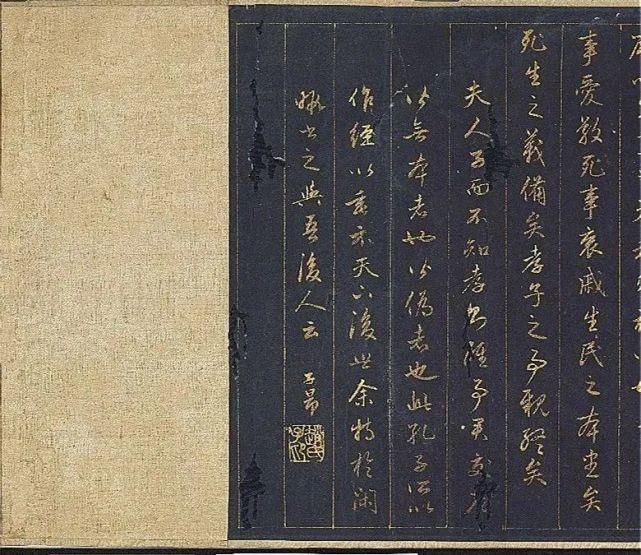 事愛敬死事哀戚生民之本盡矣
死生之義備矣孝子之事親終矣
夫人子而不知孝
以無本者也以偽者也此孔子所以
作經以垂示天下後世余特於閑
暇書之與吾後人云 子昂
趙氏子昂